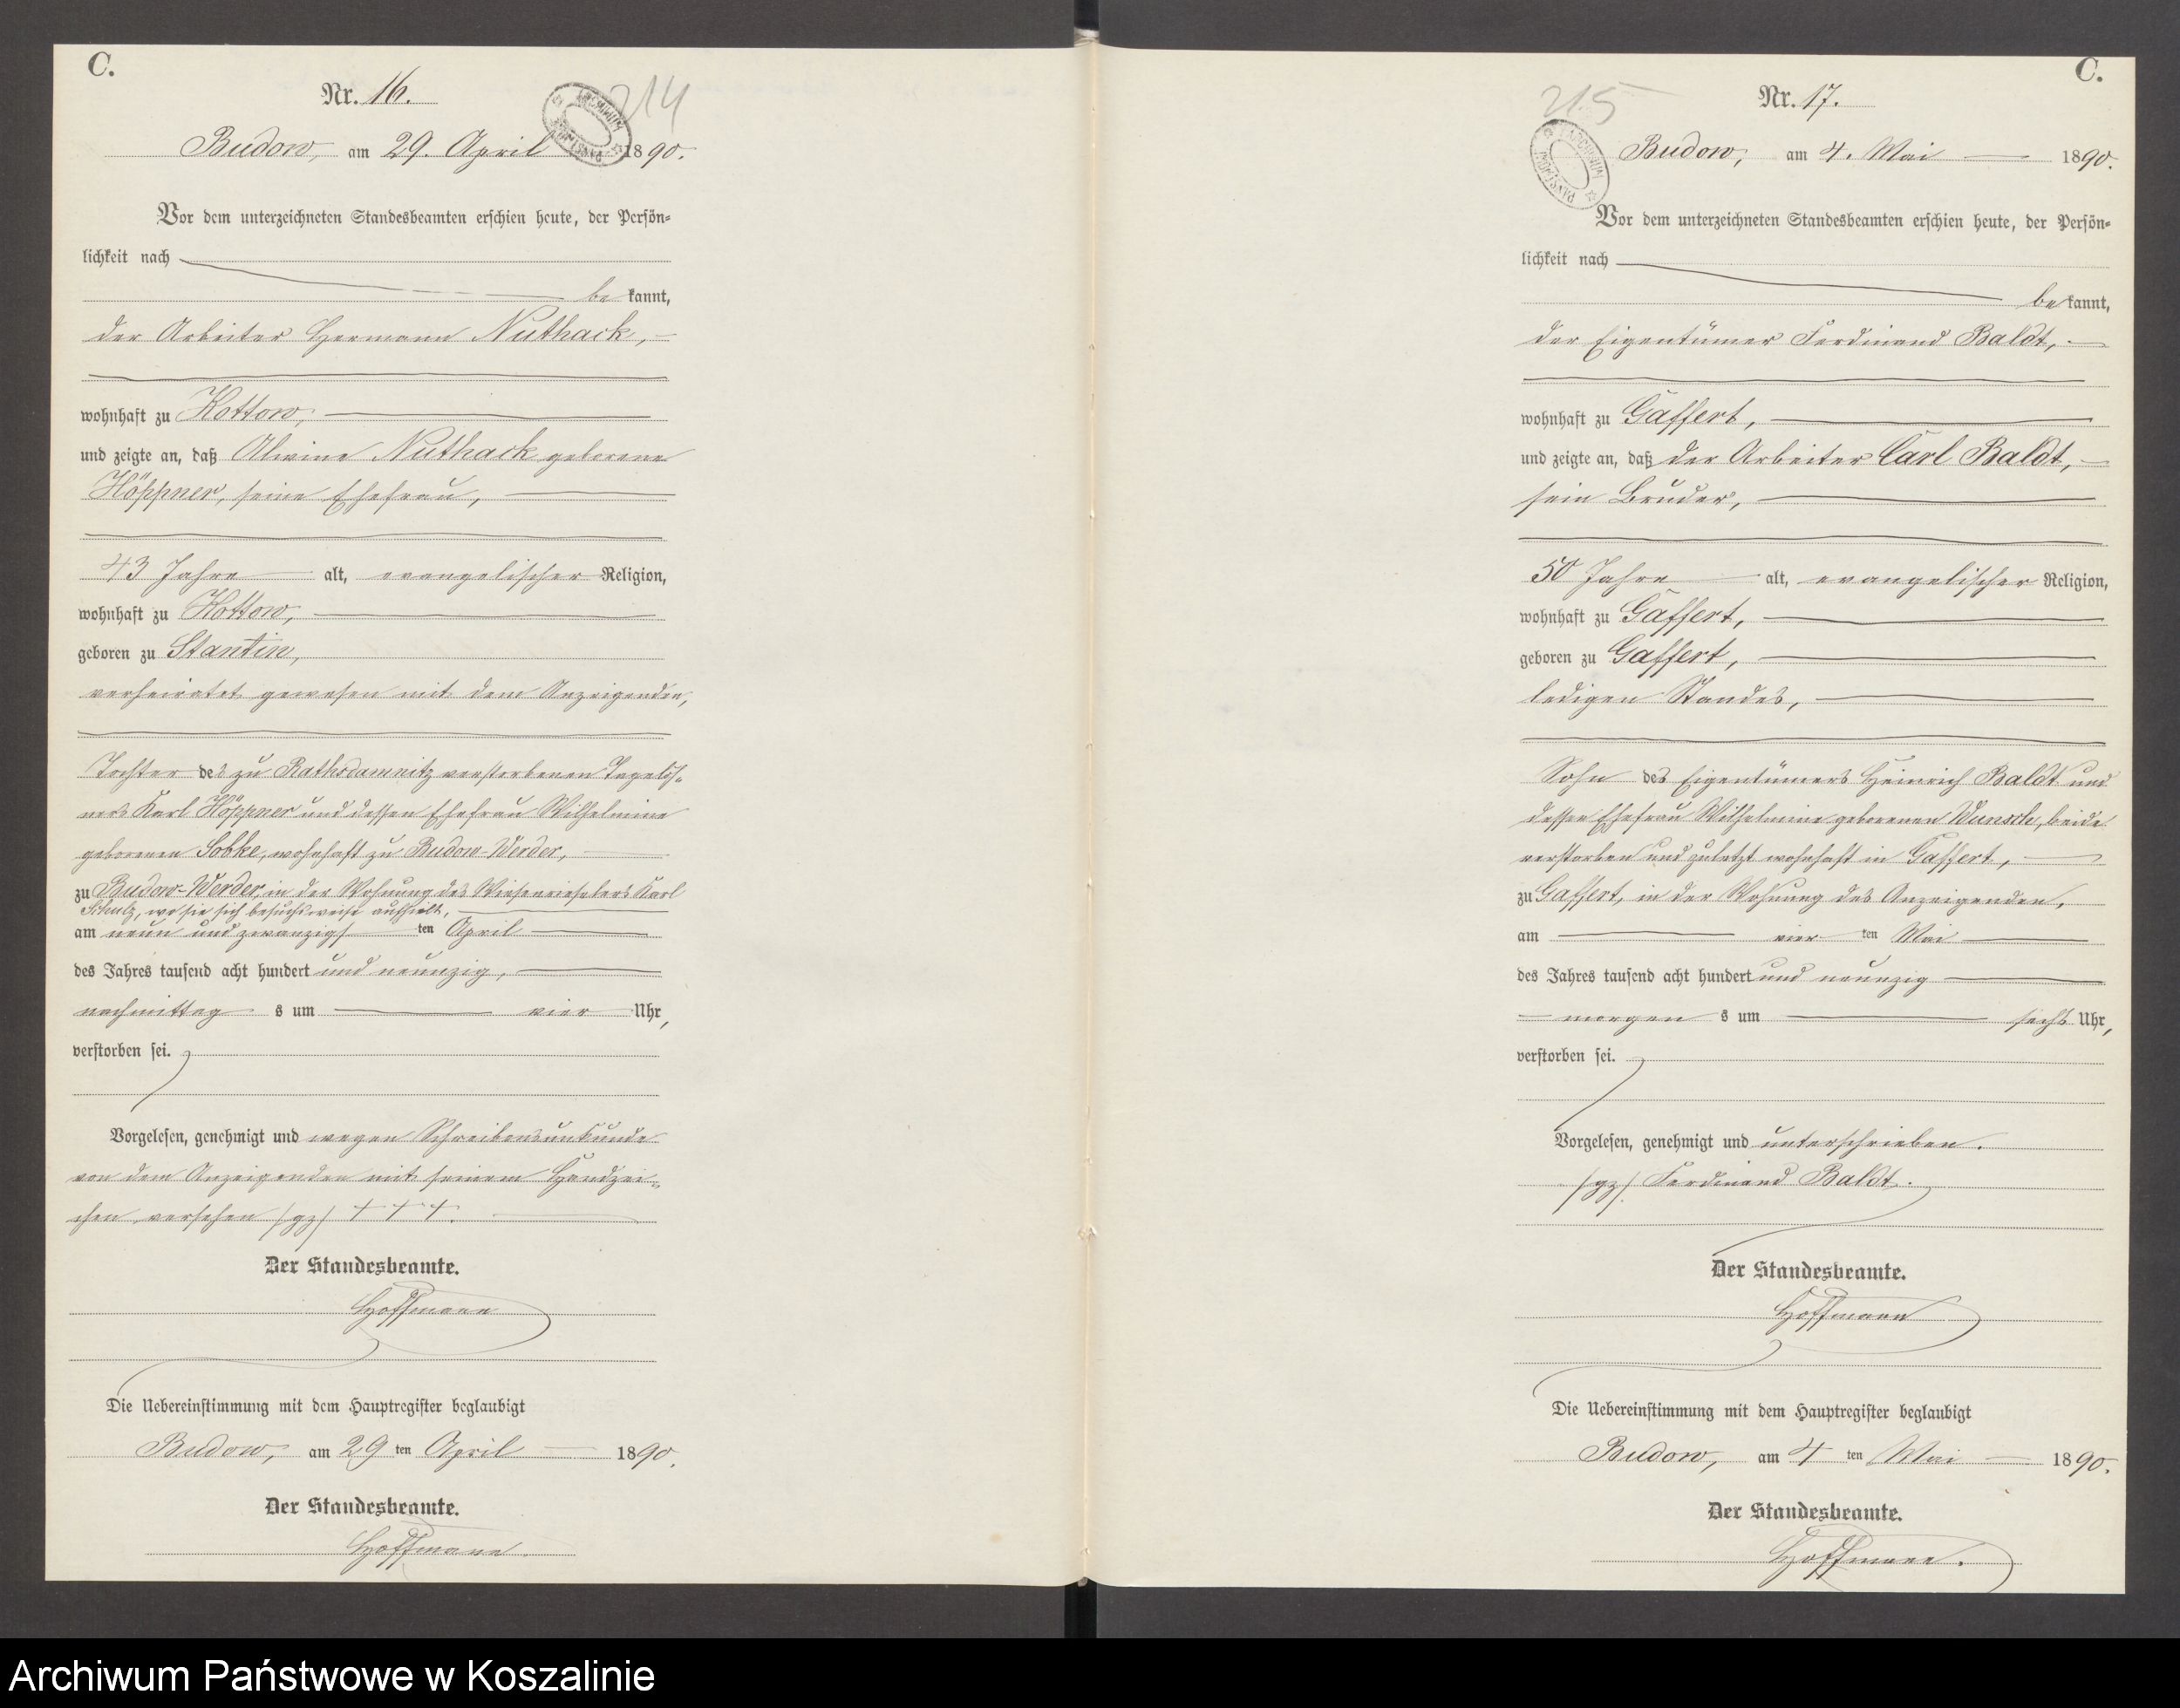 C.
Nr. 16.
214
Budow, am 29. April 1890.
Vor dem unterzeichneten Standesbeamten erschien heute, der Persön-
lichkeit nach
be kannt,
der Arbeiter Hermann Nuthack,
wohnhaft zu Kottow,
und zeigte an, daß Alwine Nuthack geborene
Höppner, seine Ehefrau,
43 Jahre alt, evangelischer Religion,
wohnhaft zu Kottow,
geboren zu Stantin,
verheiratet gewesen mit dem Anzeigenden,
Tochter des zu Rathsdamnitz verstorbenen Tagelöh-
ners Karl Höppner und dessen Ehefrau Wilhelmine
geborenen Sobke, wohnhaft zu Budow-Werder,
zu Budow-Werder, in der Wohnung des Wiesenrieselers Karl
Schulz, wo sie sich besuchsweise aufhielt,
am neun und zwanzigsten April
des Jahres tausend acht hundert und neunzig,
nachmittags um vier Uhr,
verstorben sei.
Vorgelesen, genehmigt und wegen Schreibensunkunde
von dem Anzeigenden mit seinem Handzei-
chen versehen /gz/ +++.
Der Standesbeamte.
Hoffmann
Die Uebereinstimmung mit dem Hauptregister beglaubigt
Budow, am 29ten April 1890.
Der Standesbeamte.
Hoffmann.
C.
Nr. 17.
215
ARCHIWUM PAŃSTWOWE
Budow, am 4. Mai 1890.
Vor dem unterzeichneten Standesbeamten erschien heute, der Persön-
lichkeit nach
be kannt,
der Eigentümer Ferdinand Baldt,
wohnhaft zu Gaffert,
und zeigte an, daß der Arbeiter Carl Baldt,
sein Bruder,
50 Jahre alt, evangelischer Religion,
wohnhaft zu Gaffert,
geboren zu Gaffert,
ledigen Standes,
Sohn des Eigentümers Heinrich Baldt und
dessen Ehefrau Wilhelmine geborenen Wunsch, beide
verstorben und zuletzt wohnhaft in Gaffert,
zu Gaffert, in der Wohnung des Anzeigenden,
am vierten Mai
des Jahres tausend acht hundert und neunzig
morgens um sechs Uhr,
verstorben sei.
Vorgelesen, genehmigt und unterschrieben.
/gz/ Ferdinand Baldt.
Der Standesbeamte.
Hoffmann
Die Uebereinstimmung mit dem Hauptregister beglaubigt
Budow, am 4ten Mai 1890.
Der Standesbeamte.
Hoffmann.
Archiwum Państwowe w Koszalinie